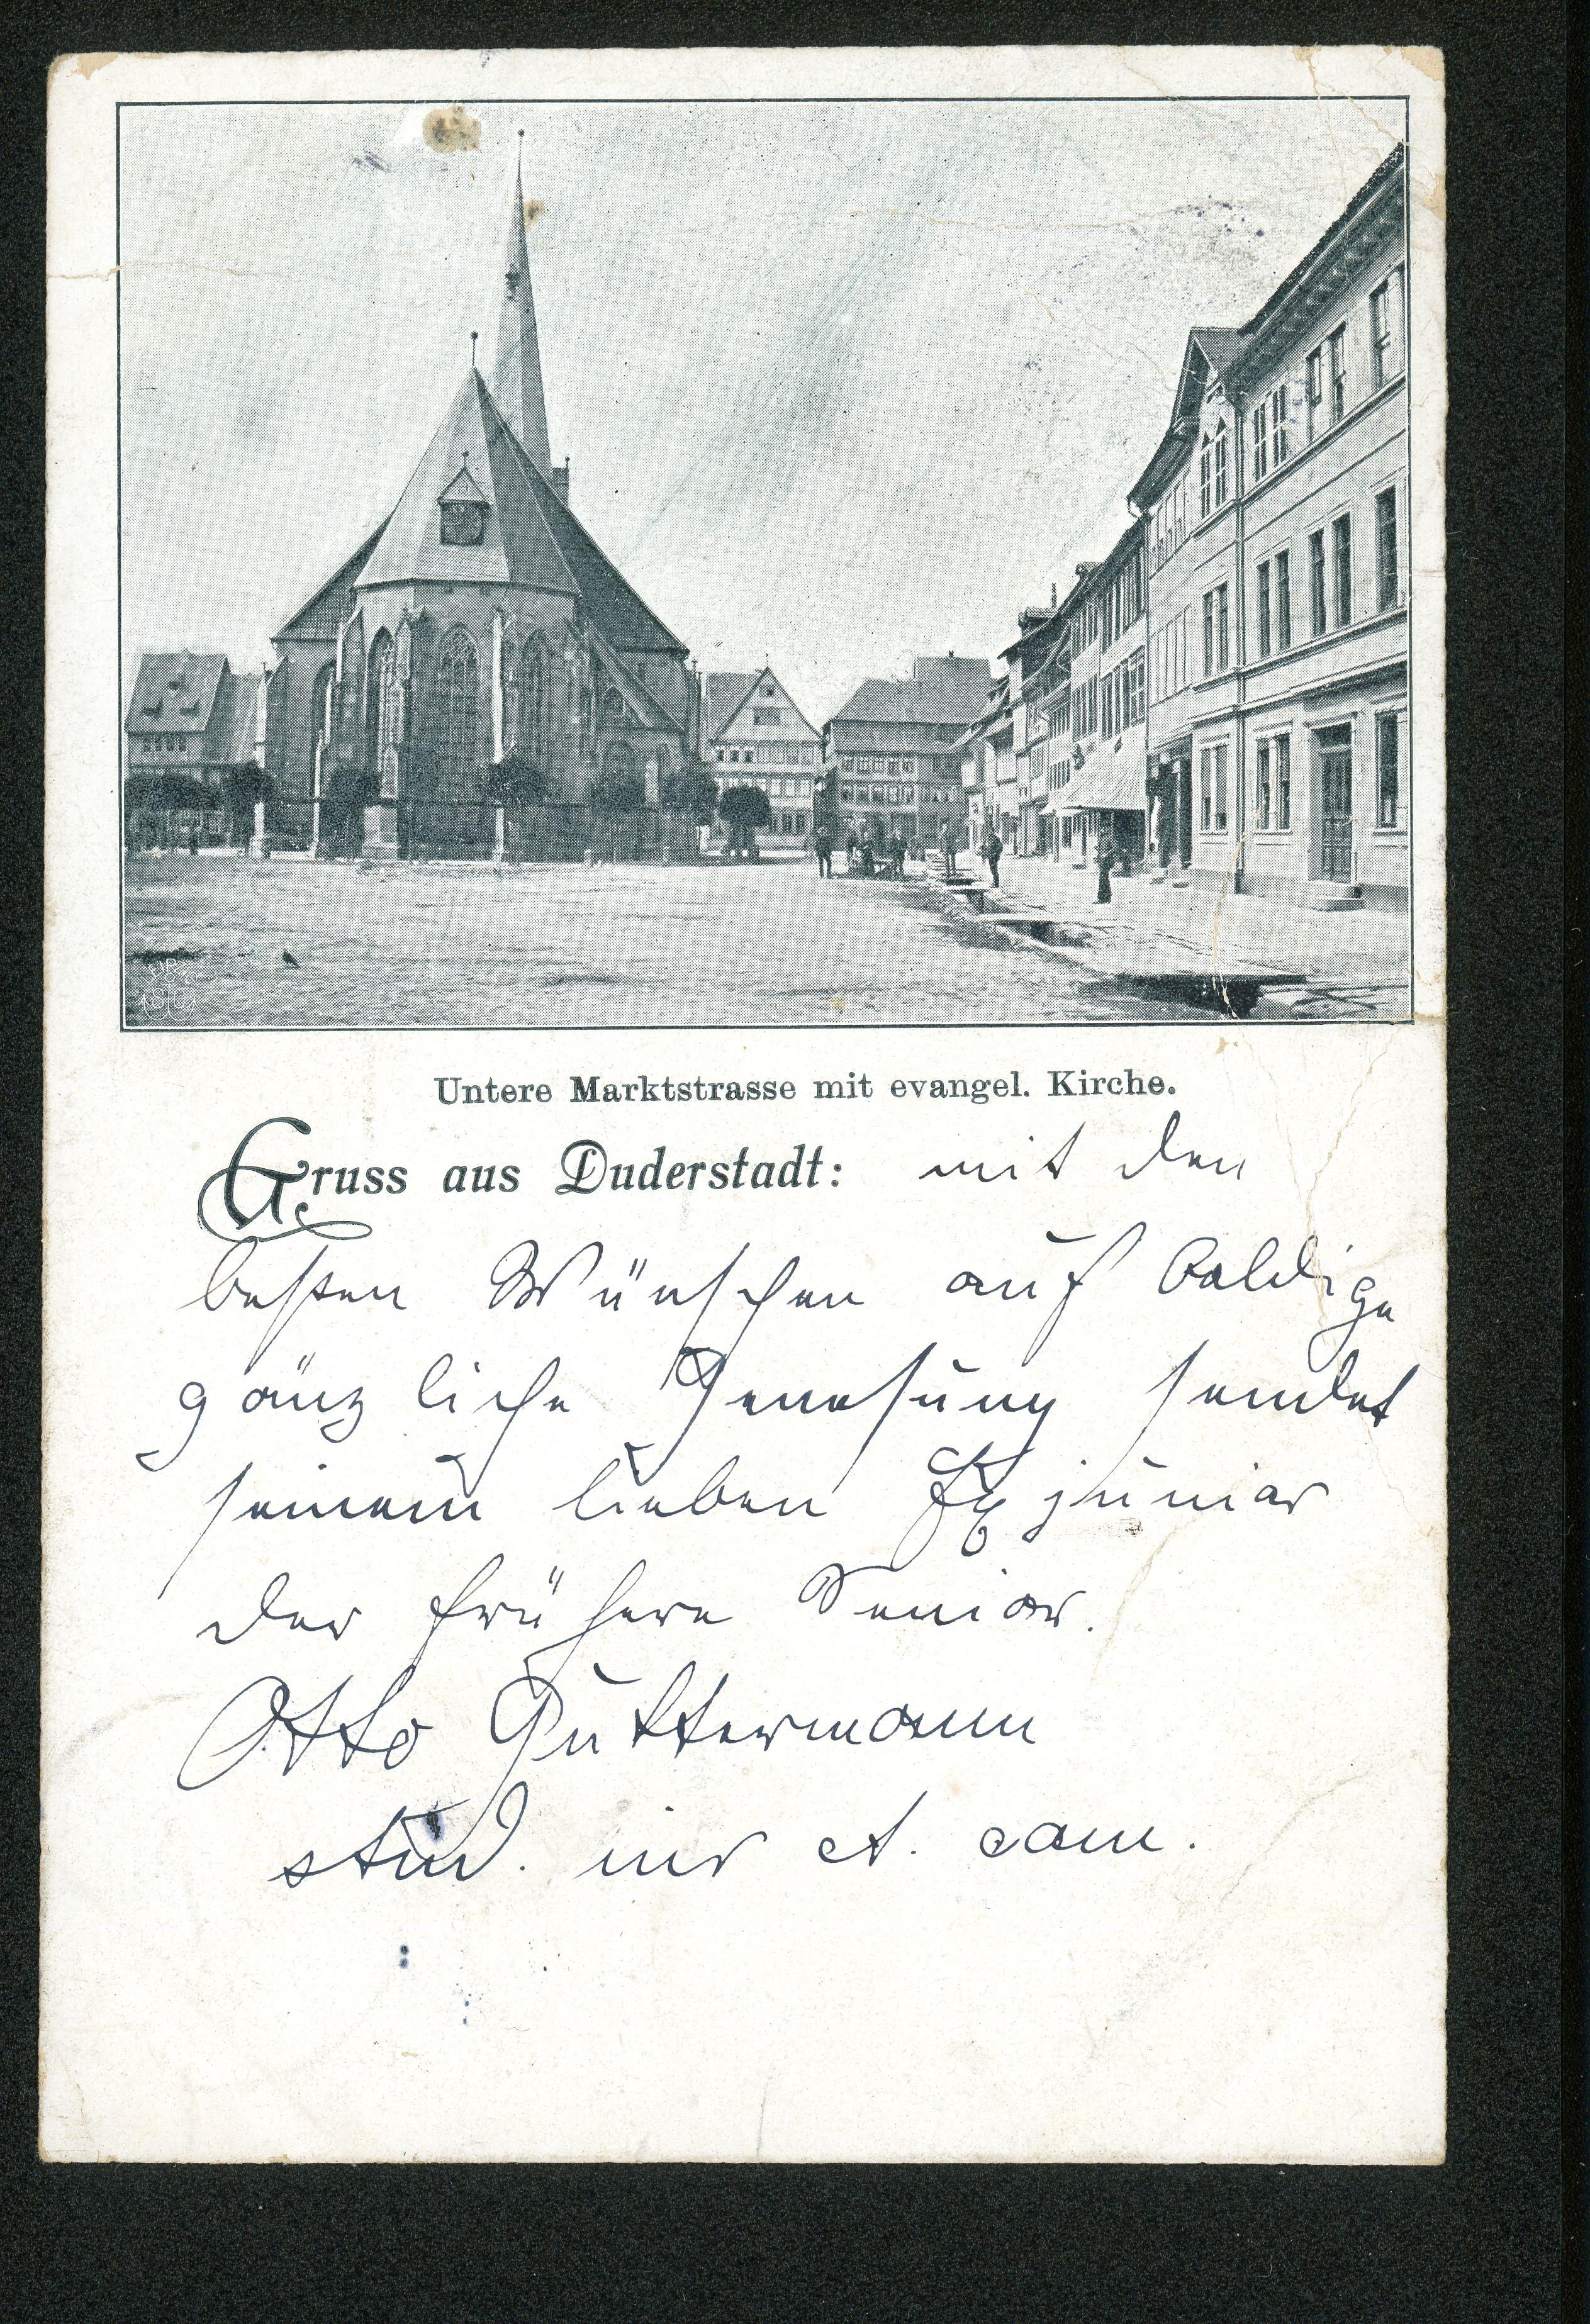 Untere Marktstrasse mit evangel. Kirche.
Gruss aus Duderstadt: mit den
besten Wünschen auf baldige
gänzliche Genesung sendet
seinem lieben Exjunior
der frühere Senior.
Otto Guttermann
stud. iur et. cam.